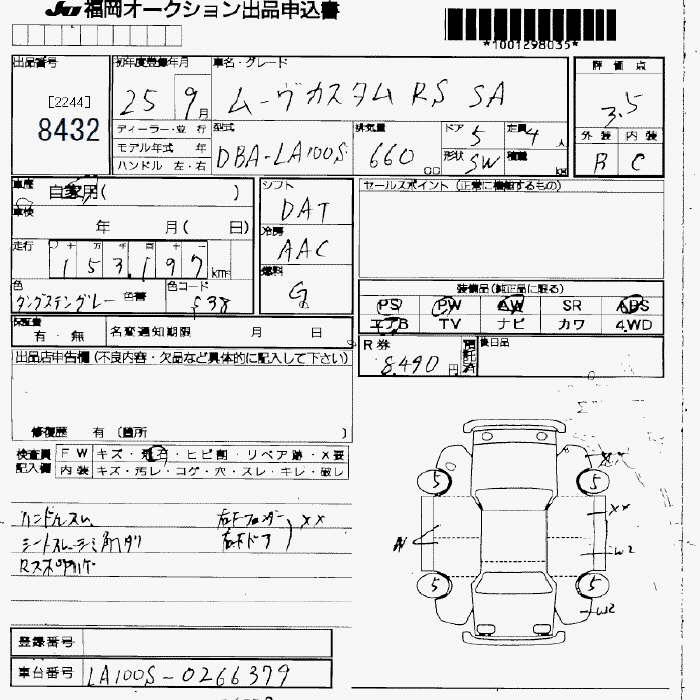 JU福岡オークション出品申込書
*1001298035*
出品番号
[2244]
8432
初年度登録年月
25 9月
車名・グレード
ムーヴカスタム RS SA
評価点
3.5
外装 内装
B C
ディーラー・並行
モデル年式 年
ハンドル 左・右
型式
DBA-LA100S
排気量
660 CC
ドア 5
定員 4 人
形状 SW
積載 kg
車歴 自家用( )
車検 年 月( 日)
走行 十 万 千 百 十
153,197 km
色
タングステングレー 色替
色コード
シフト
DAT
冷房
AAC
燃料
G
セールスポイント (正常に機能するもの)
装備品(純正品に限る)
PS PW AW SR ABS
エアB TV ナビ カワ 4.WD
保証書
有・無
名変通知期限 月 日
R券
8,490 円
預託済
後日品
出品店申告欄 (不良内容・欠品など具体的に記入して下さい)
修復歴 有 〔箇所 〕
検査員記入欄
FW キズ・飛石・ヒビ割・リペア跡・X要
内装 キズ・汚レ・コゲ・穴・スレ・キレ・破レ
ハンドルスレ
右Fフェンダー
XX
右Fドア
5 5
XX
XX
W2
5 5
W2
登録番号
車台番号 LA100S-0266379